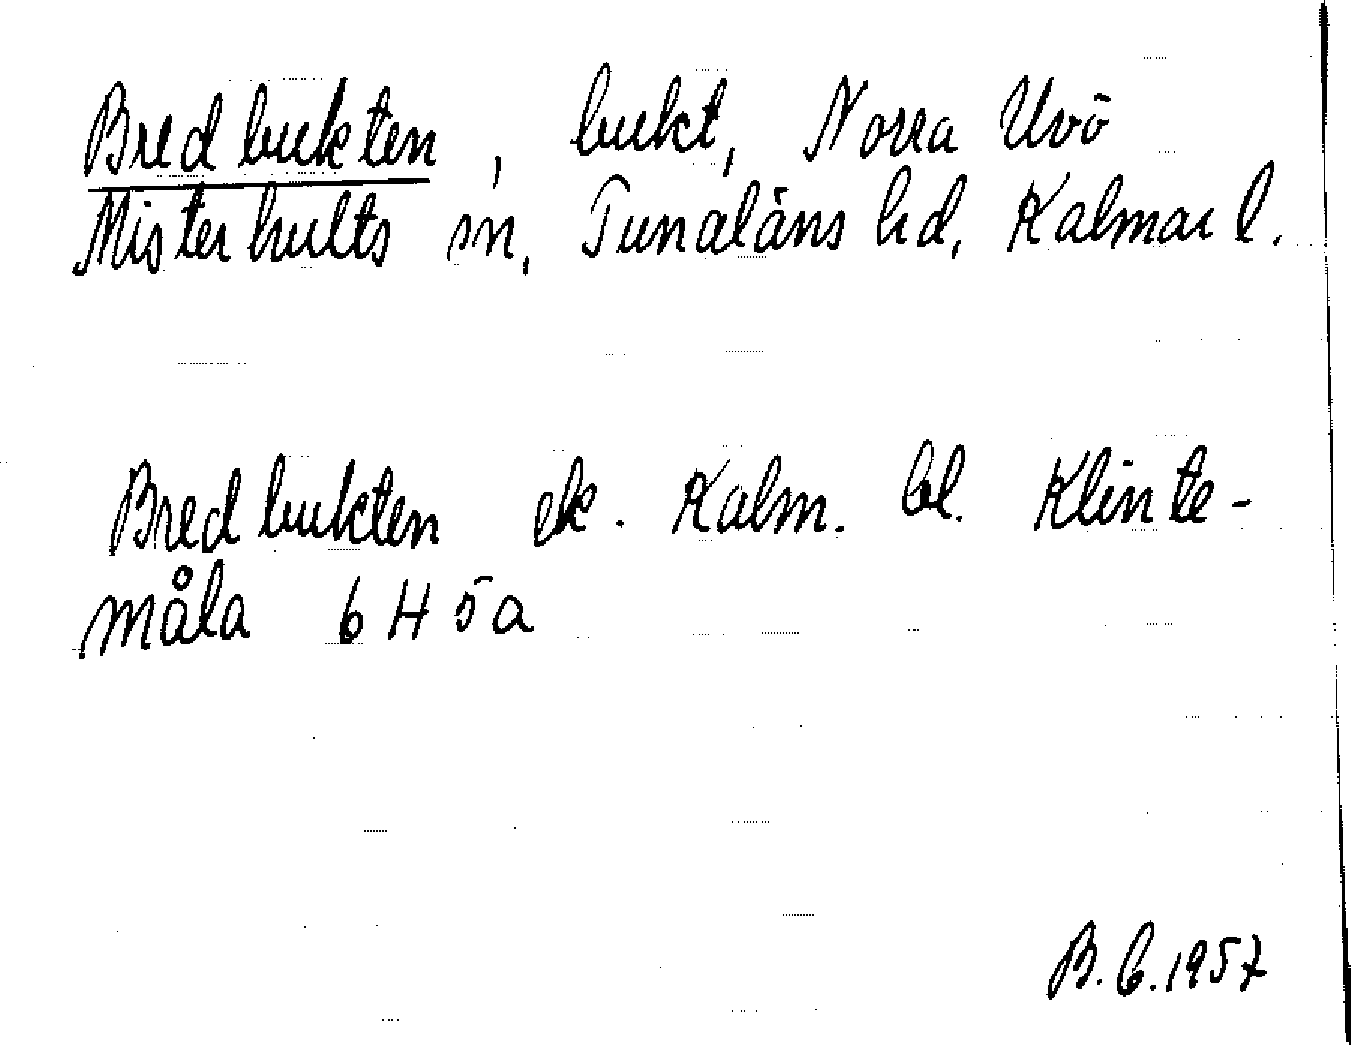 Bredbukten, bukt, Norra Uvö
Misterhults sn, Tunaläns hd, Kalmar l.
Bredbukten ek. Kalm. bl. Klinte-
måla 6 H 5a
B.C. 1957